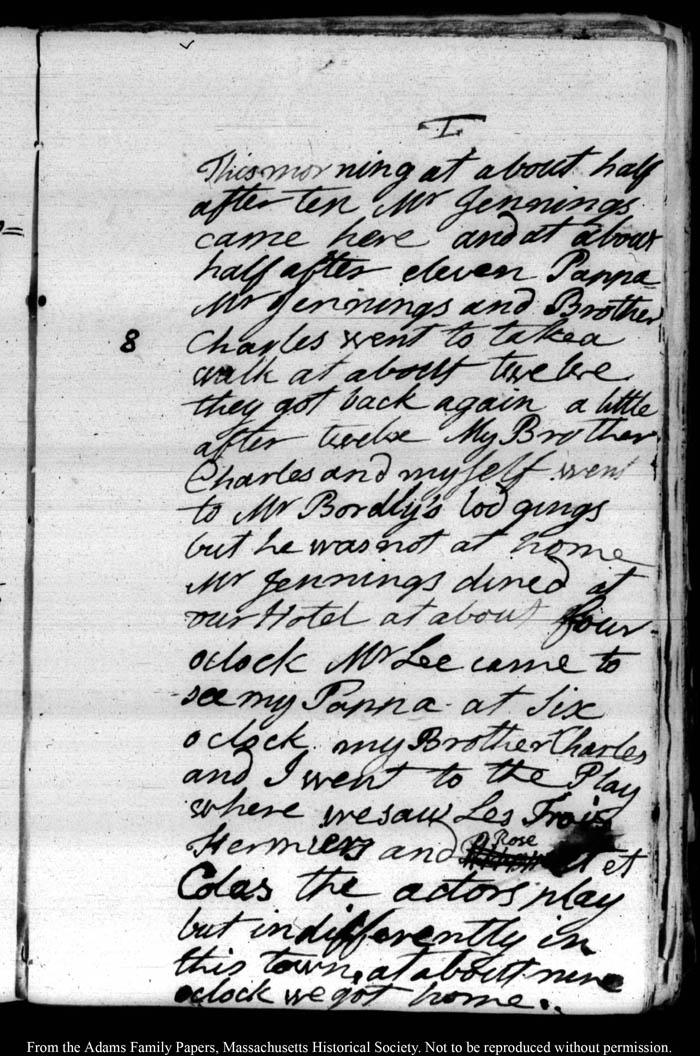 I
This morning at about half
after ten Mr Jennings
came here and at about
half after eleven Pappa
Mr Jennings and Brother
8 Charles went to take a
walk at about twelve
they got back again a little
after twelve My Brother
Charles and myself went
to Mr Bordly's lodgings
but he was not at home
Mr Jennings dined at
our Hotel at about four
oclock Mr Lee came to
see my Pappa at Six
oclock my Brother Charles
and I went to the Play
where we saw Les Trois
Fermiers and Rose et
Colas the actors play
but indifferently in
this town, at about nine
oclock we got home.
From the Adams Family Papers, Massachusetts Historical Society. Not to be reproduced without permission.